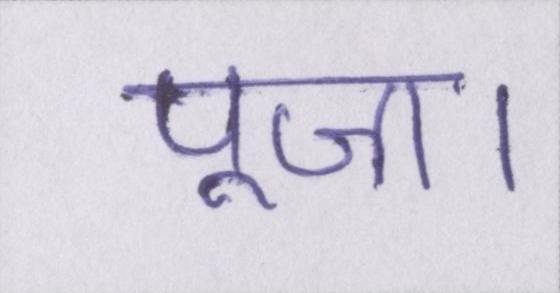 पूजा।